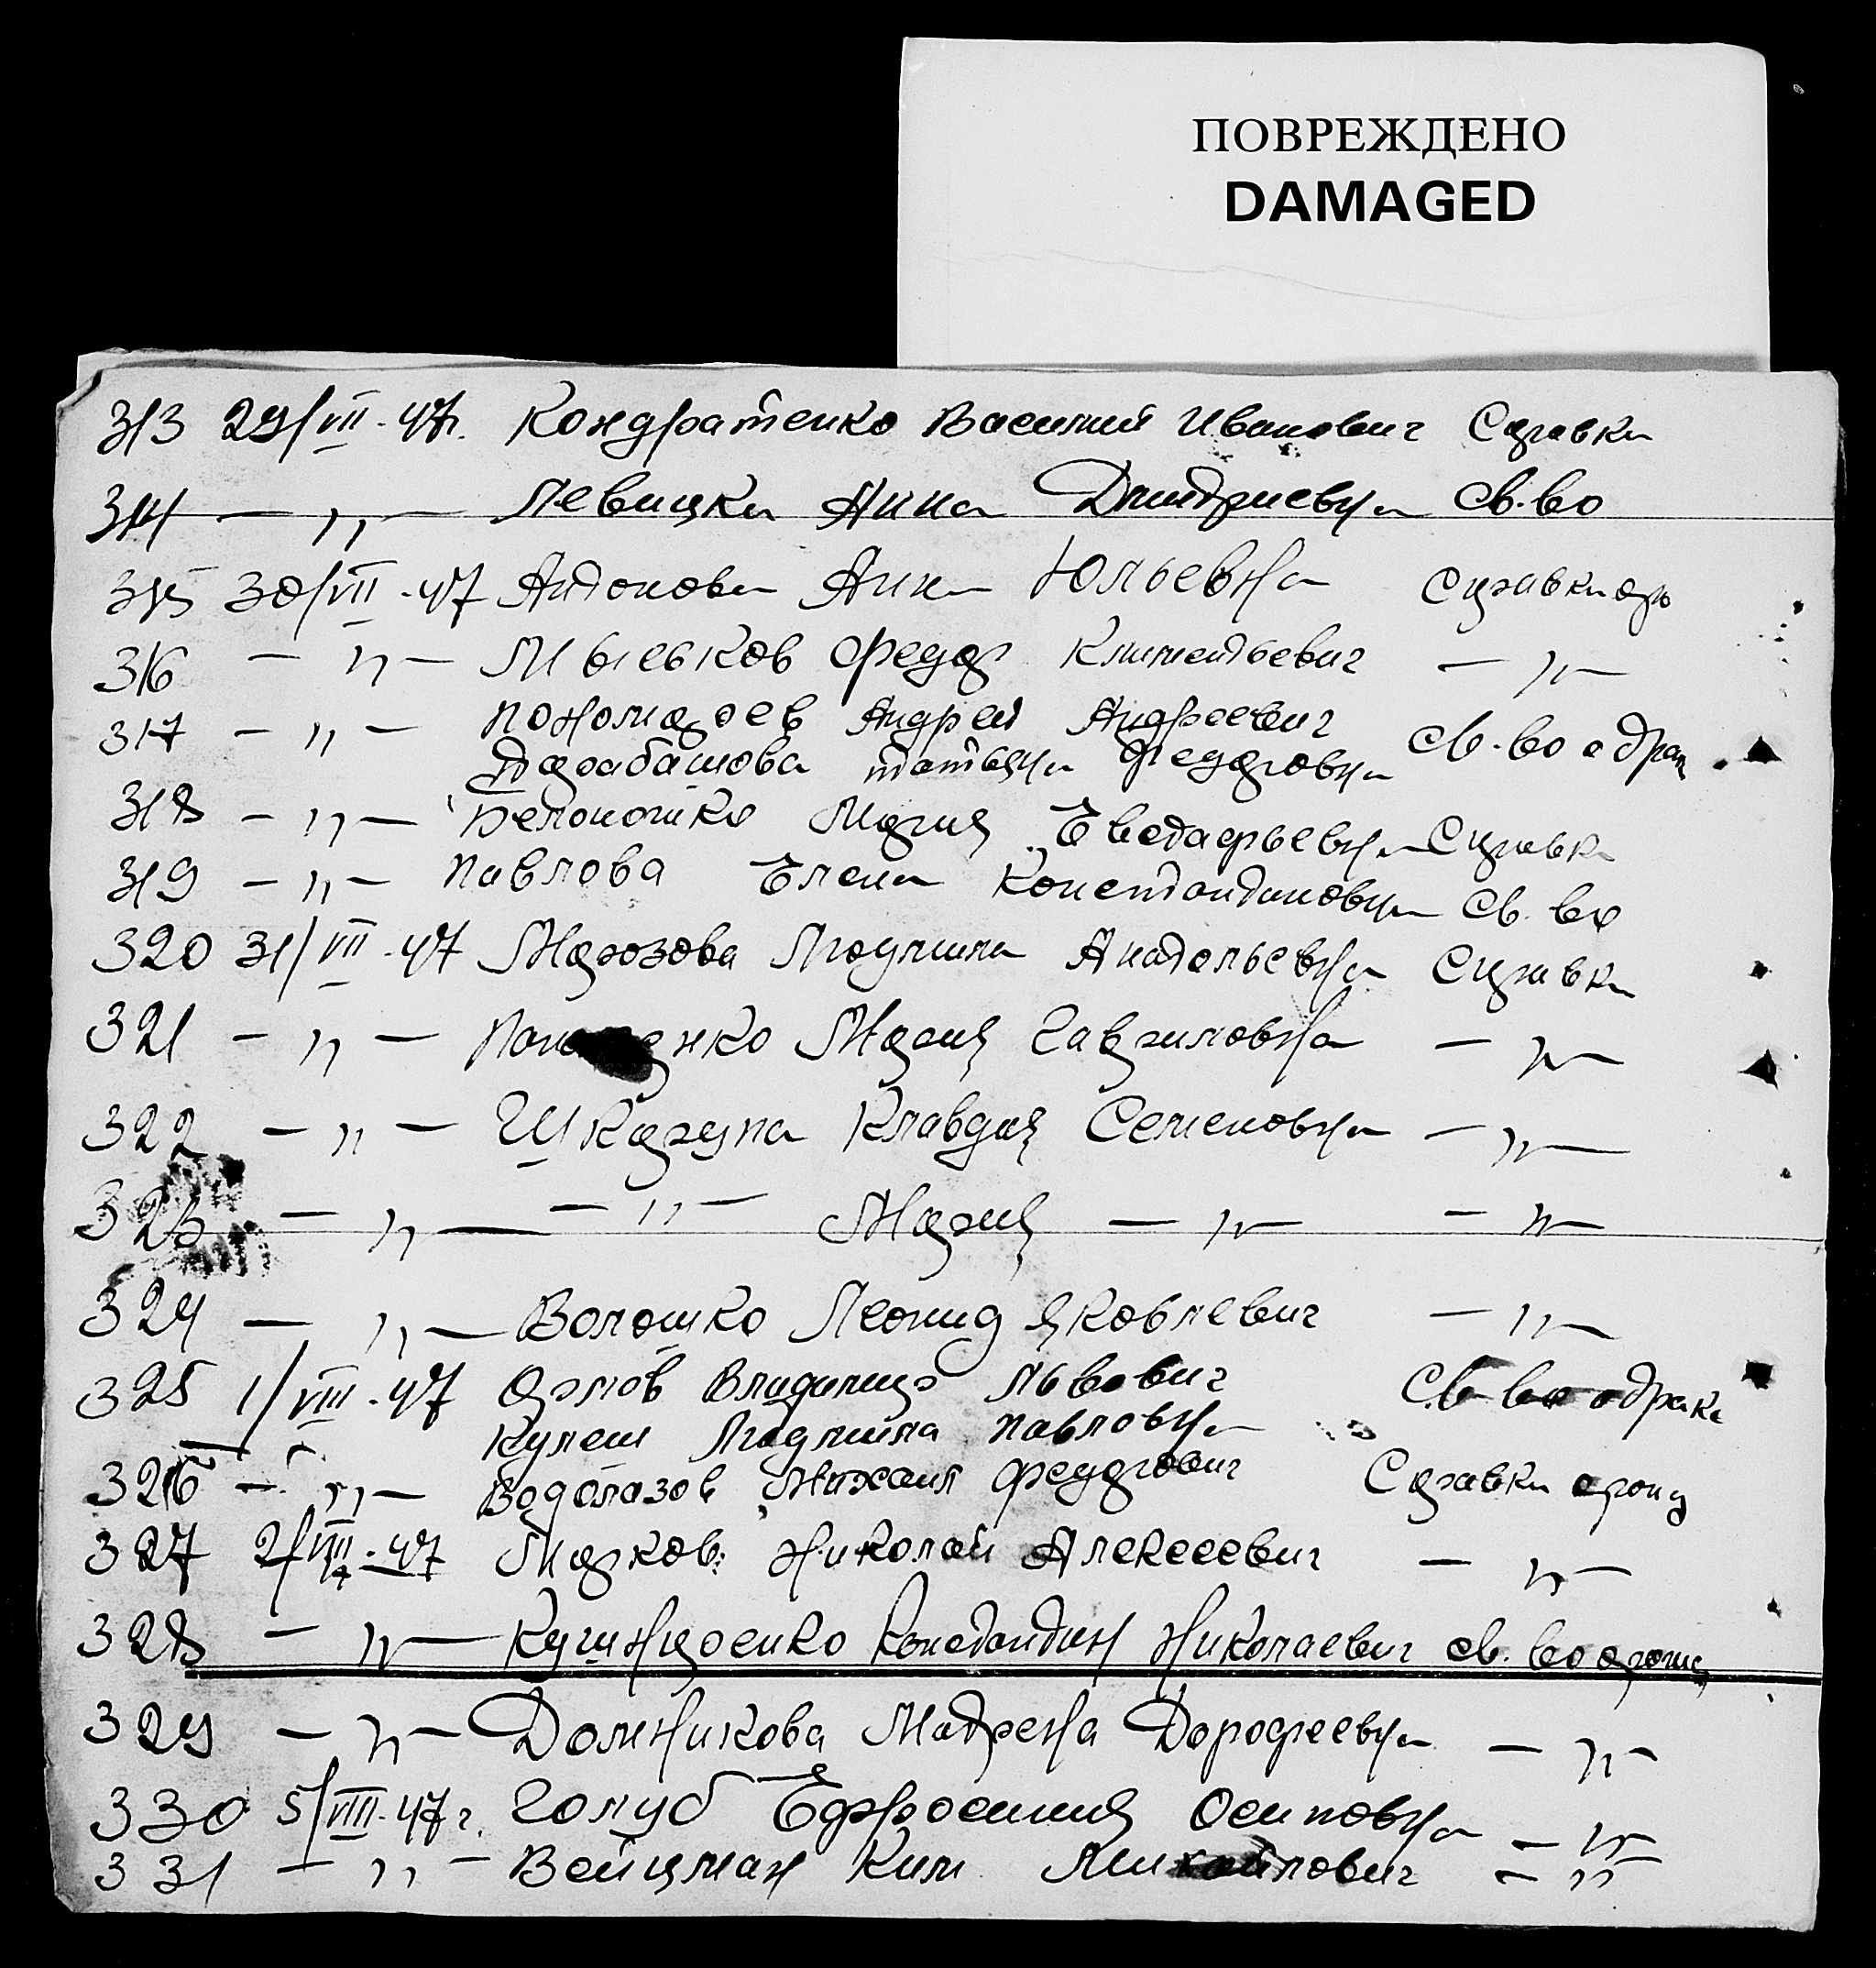 ПОВРЕЖДЕНО
DAMAGED
313 29/VII-47г. Кондратенко Василий Иванович Справка
314 - " - Левицка Анна Дмитриевна св.во
315 30/VII-47 Антонова Анна Юльевна Справка о ро
316 - " - Мыськов Федор Климентьевич - " -
317 - " - Пономарев Андрей Андреевич св.-во о брак
Барабашова Татьяна Федоровна
318 - " - Белоношко Мария Евстафьевна Справка
319 - " - Павлова Елена Константиновна св. во
320 31/VII-47 Морозова Людмила Анатольевна Справка
321 - " - Мария Гавриловна - " -
322 - " - Шкарупа Клавдия Семеновна - " -
323 - " - - " - Мария - " - - " -
324 - " - Волошко Леонид Яковлевич - " -
325 1/VIII-47 Орлов Владимир Львович Св-во о браке
Кулеш Людмила Павловна
326 - " - Водолазов Михаил Федорович Справка о рожд
327 2/VIII-47 Марков Николай Алексеевич - " -
328 - " - Константин Николаевич св. во о рожд
329 - " - Долникова Матрена Дорофеевна - " -
330 5/VIII-47г. Голуб Ефросиния Осиповна - " -
331 - " - Вейцман Ким Михайлович - " -